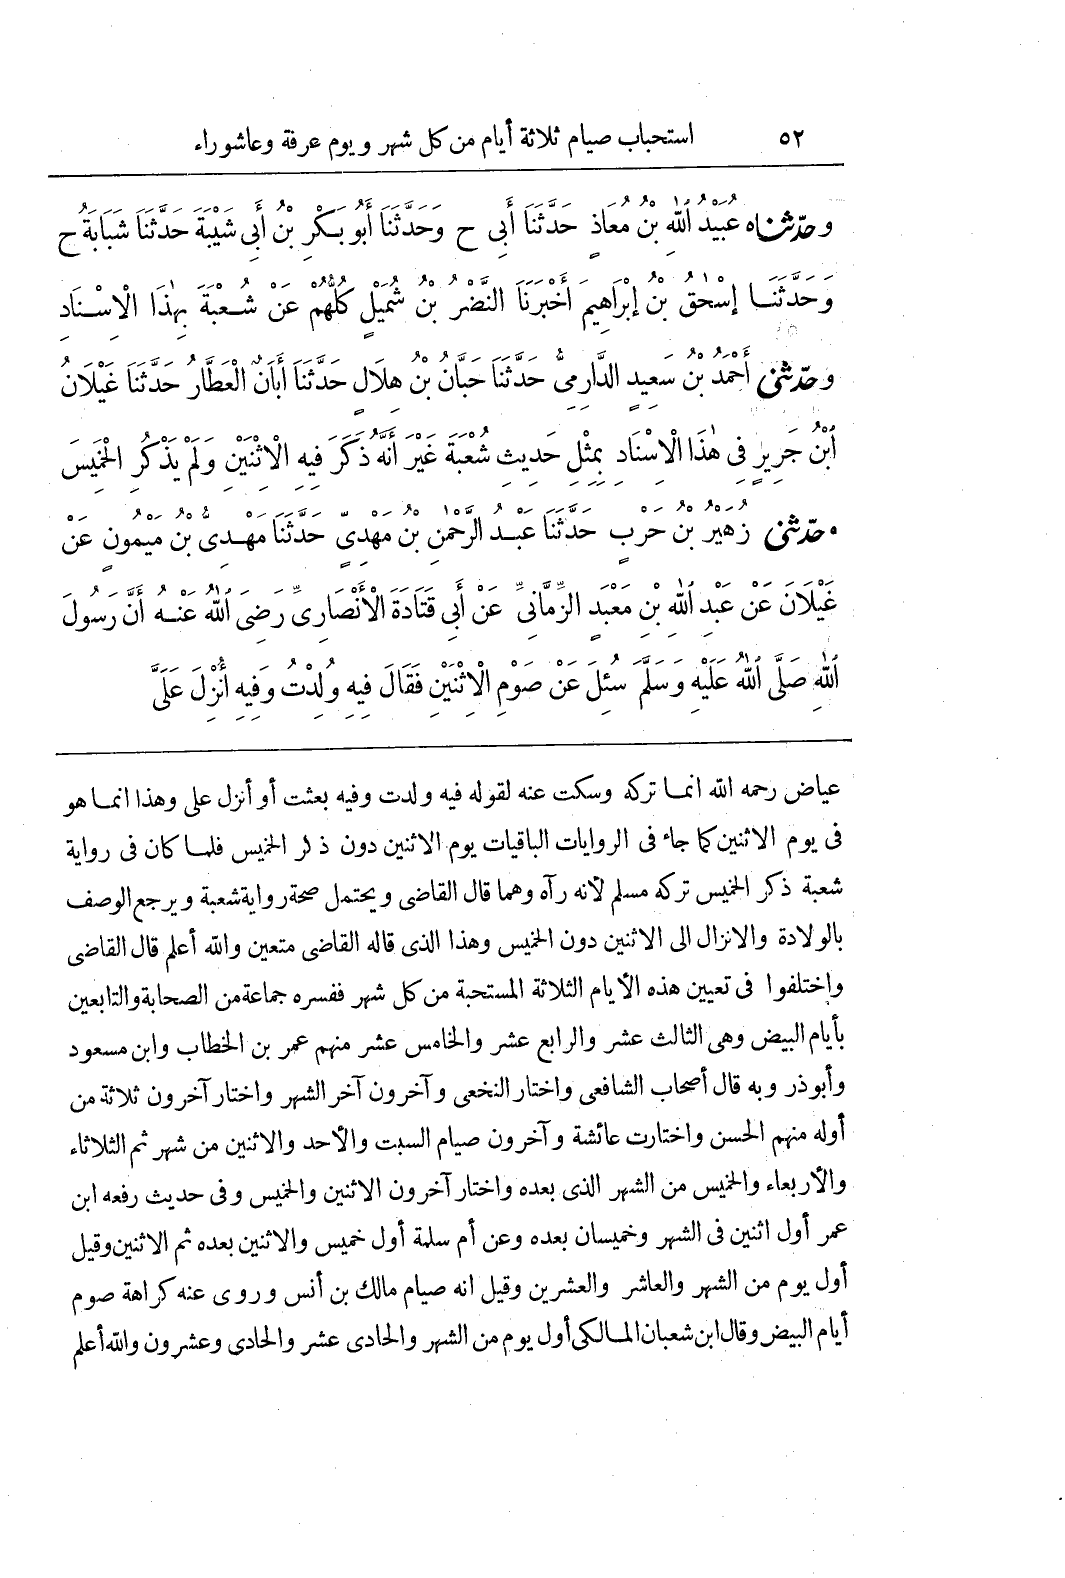 ٥٢ استحباب صيام ثلاثة أيام من كل شهر ويوم عرفة وعاشوراء
وحَدَّثَنَاه عُبَيْدُ اللهِ بْنُ مُعَاذٍ حَدَّثَنَا أَبِى ح وَحَدَّثَنَا أَبُو بَكْرِ بْنُ أَبِى شَيْبَةَ حَدَّثَنَا شَبَابَةُ ح
وَحَدَّثَنَا إِسْحٰقُ بْنُ إِبْرَاهِيمَ أَخْبَرَنَا النَّضْرُ بْنُ شُمَيْلٍ كُلُّهُمْ عَنْ شُعْبَةَ بِهٰذَا الْإِسْنَادِ
وحَدَّثَنِى أَحْمَدُ بْنُ سَعِيدٍ الدَّارِمِىُّ حَدَّثَنَا حَبَّانُ بْنُ هِلَالٍ حَدَّثَنَا أَبَانٌ الْعَطَّارُ حَدَّثَنَا غَيْلَانُ
ابْنُ جَرِيرٍ فِى هٰذَا الْإِسْنَادِ بِمِثْلِ حَدِيثِ شُعْبَةَ غَيْرَ أَنَّهُ ذَكَرَ فِيهِ الْإِثْنَيْنِ وَلَمْ يَذْكُرِ الْخَمِيسَ
٠ حَدَّثَنِى زُهَيْرُ بْنُ حَرْبٍ حَدَّثَنَا عَبْدُ الرَّحْمٰنِ بْنُ مَهْدِىٍّ حَدَّثَنَا مَهْدِىُّ بْنُ مَيْمُونٍ عَنْ
غَيْلَانَ عَنْ عَبْدِ اللهِ بْنِ مَعْبَدٍ الزِّمَّانِىِّ عَنْ أَبِى قَتَادَةَ الْأَنْصَارِىِّ رَضِىَ اللهُ عَنْهُ أَنَّ رَسُولَ
اللهِ صَلَّى اللهُ عَلَيْهِ وَسَلَّمَ سُئِلَ عَنْ صَوْمِ الْإِثْنَيْنِ فَقَالَ فِيهِ وُلِدْتُ وَفِيهِ أُنْزِلَ عَلَىَّ
عياض رحمه الله انما تركه وسكت عنه لقوله فيه ولدت وفيه بعثت أو أنزل على وهذا انما هو
فى يوم الاثنين كما جاء فى الروايات الباقيات يوم الاثنين دون ذكر الخميس فلما كان فى رواية
شعبة ذكر الخميس تركه مسلم لأنه رآه وهما قال القاضى ويحتمل صحة رواية شعبة ويرجع الوصف
بالولادة والانزال الى الاثنين دون الخميس وهذا الذى قاله القاضى متعين والله أعلم قال القاضى
واختلفوا فى تعيين هذه الأيام الثلاثة المستحبة من كل شهر ففسره جماعة من الصحابة والتابعين
بأيام البيض وهى الثالث عشر والرابع عشر والخامس عشر منهم عمر بن الخطاب وابن مسعود
وأبو ذر وبه قال أصحاب الشافعى واختار النخعى وآخرون آخر الشهر واختار آخرون ثلاثة من
أوله منهم الحسن واختارت عائشة وآخرون صيام السبت والأحد والاثنين من شهر ثم الثلاثاء
والأربعاء والخميس من الشهر الذى بعده واختار آخرون الاثنين والخميس وفى حديث رفعه ابن
عمر أول اثنين فى الشهر وخميسان بعده وعن أم سلمة أول خميس والاثنين بعده ثم الاثنين وقيل
أول يوم من الشهر والعاشر والعشرين وقيل انه صيام مالك بن أنس وروى عنه كراهة صوم
أيام البيض وقال ابن شعبان المالكى أول يوم من الشهر والحادى عشر والحادى وعشرون والله أعلم